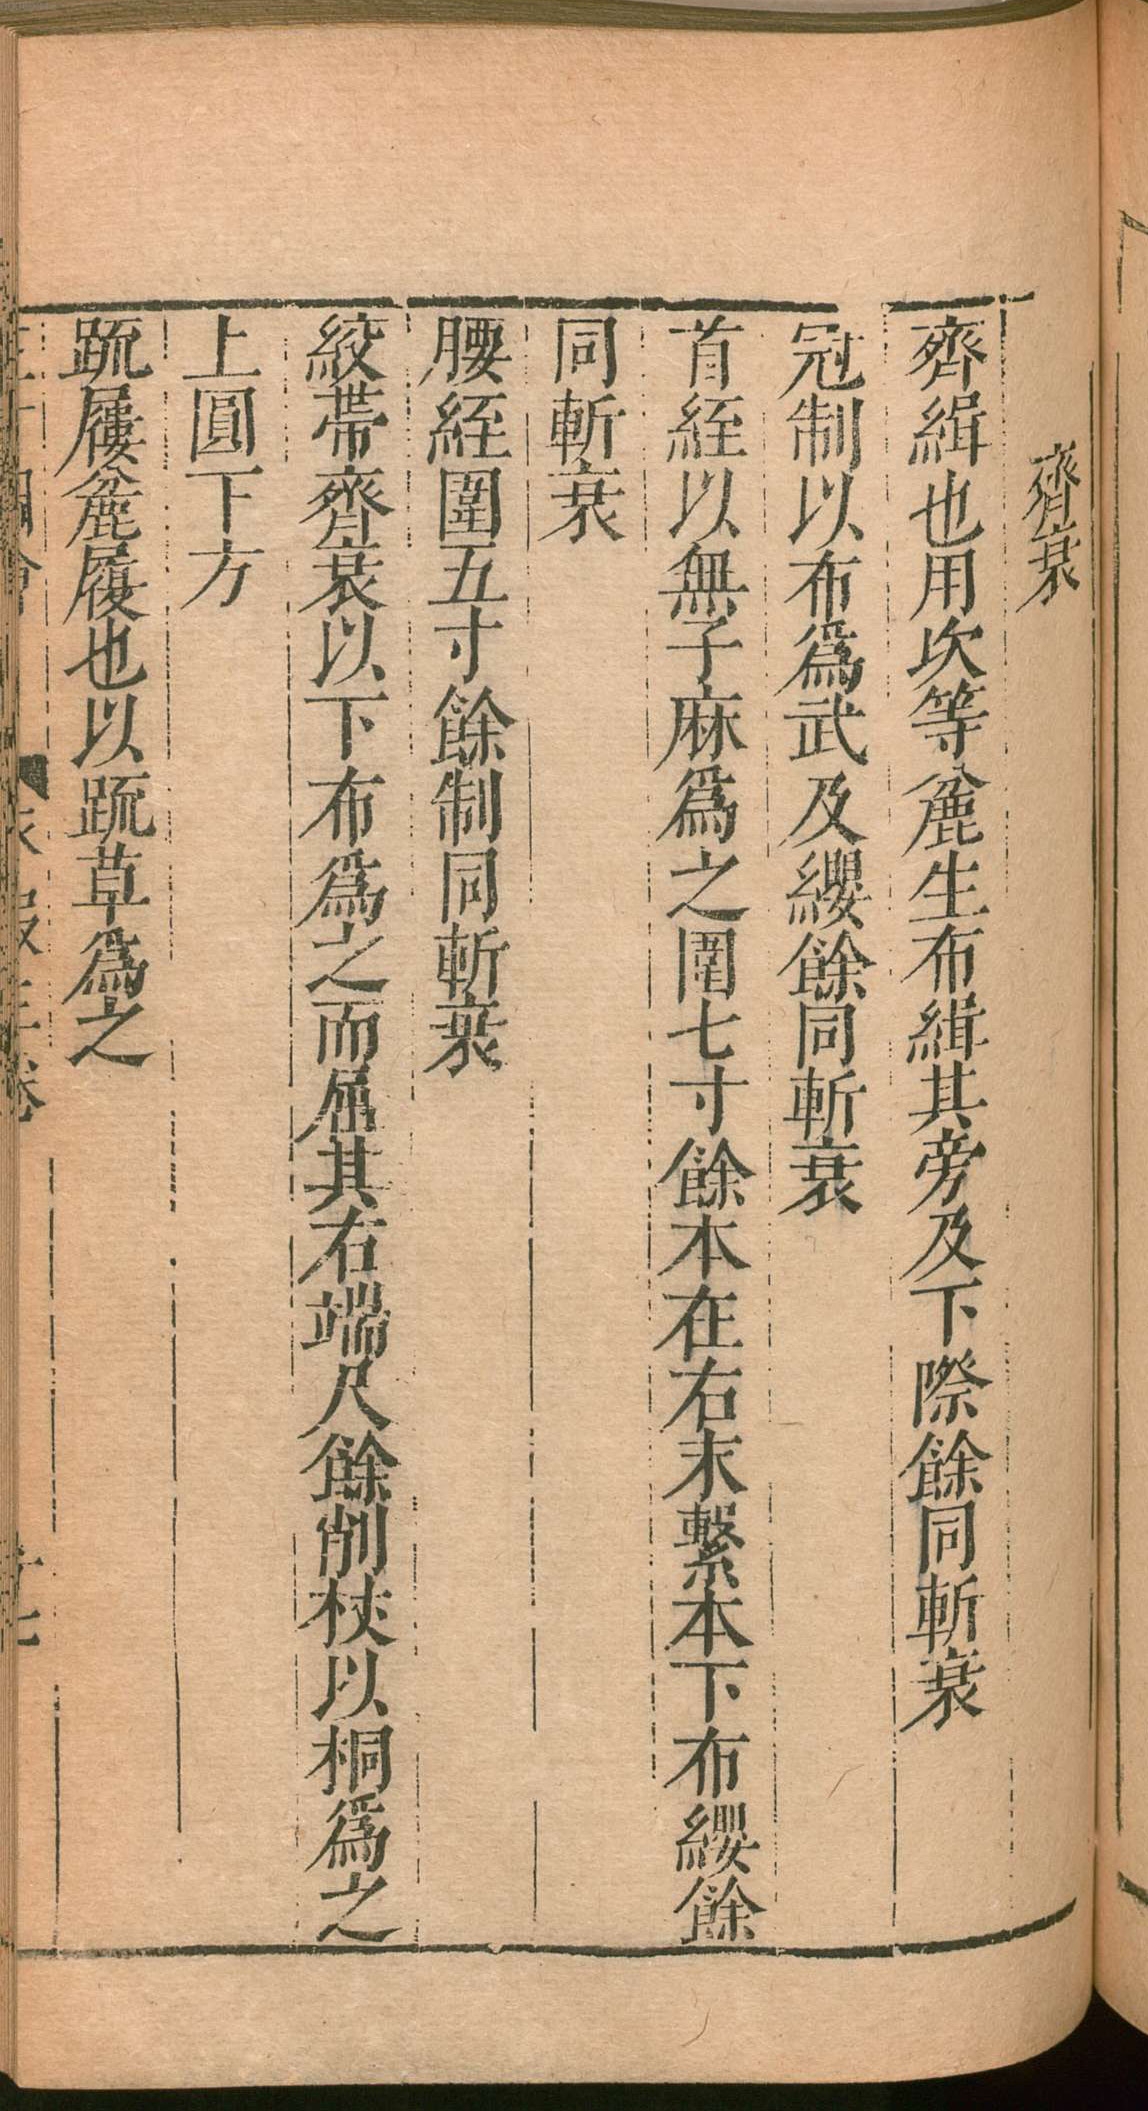 齊衰
齊緝也用次等麄生布緝其旁及下際餘同斬衰
冠制以布爲武及纓餘同斬衰
首絰以無子麻爲之圍七寸餘本在右末繫本下布纓餘
同斬衰
腰絰圍五寸餘制同斬衰
絞帶齊衰以下布爲之而屈其右端尺餘削杖以桐爲之
上圓下方
䟽屨麄履也以䟽草爲之